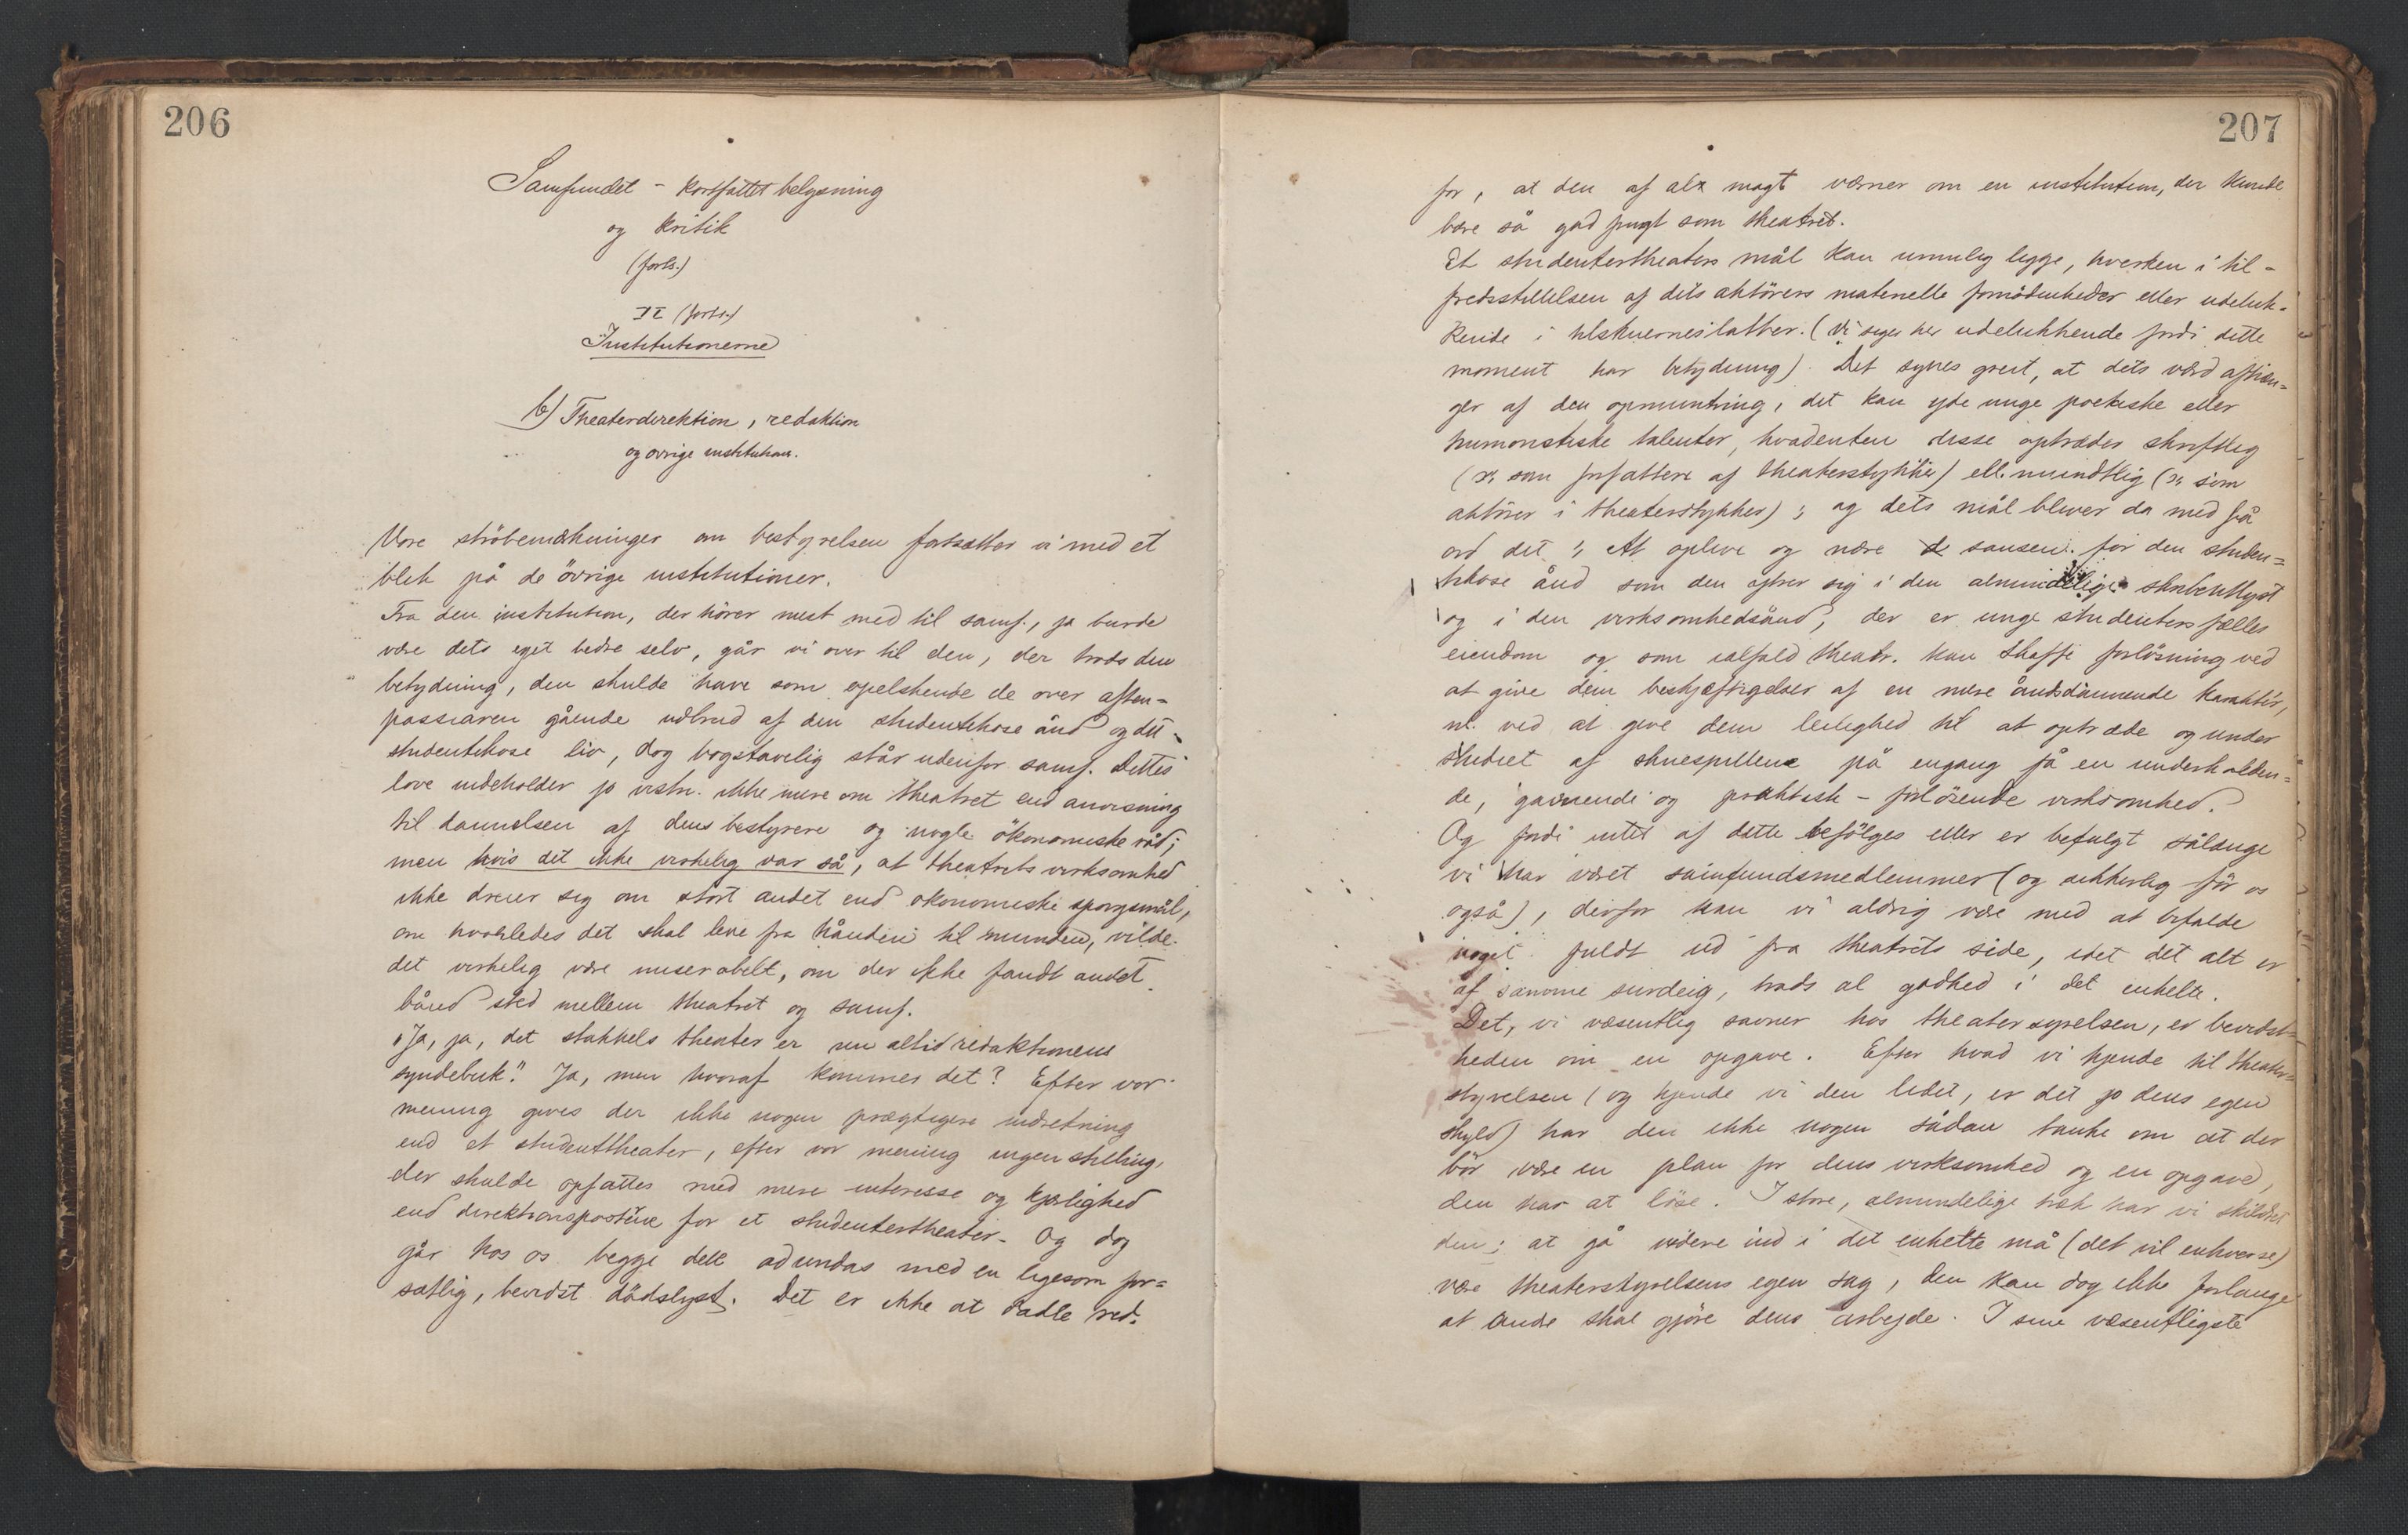 206
Samfundet - kortfattet belysning
og kritik
(forts.)
II (forts.)
Institutionerne
b) Theaterdirektion, redaktion
og øvrige institution.
Vore ströbemærkninger om bestyrelsen fortsætter vi med et
blik på de övrige institutioner.
Fra den institution, der hörer mest med til samf., ja burde
være dets eget bedre selv, går vi over til den, der trods den
betydning, den skulde have som opelskende de over aften-
passiaren gående udbrud af den studentikose ånd og det
studentikose liv, dog bogstavelig står udenfor samf. Dettes
love indeholder jo vistn. ikke mere om theatret end anvisning
til dannelsen af dens bestyrere og nogle ökonomiske råd;
men hvis det ikke virkelig var så, at theatrets virksomhed
ikke dreier sig om stort andet end økonomiske spørgsmål,
om hvorledes det skal leve fra hånden til munden, vilde
det virkelig være miserabelt, om der ikke fandt andet
bånd sted mellem theatret og samf.
"Ja, ja, det stakkels theater er nu altid redaktionens
syndebuk." Ja, men hvoraf kommer det? Efter vor
mening gives der ikke nogen prægtigere indretning
end et studenttheater, efter vor mening ingen stilling,
der skulde opfattes med mere interesse og kjærlighed
end direktionsposterne for et studentertheater. Og dog
går hos os begge dele ad undas med en ligesom for-
sætlig, bevidst dödslyst. Det er ikke at dadle red.
207
for, at den af al magt værner om en institution, der kunde
bære så god frugt som theatret.
Et studentertheaters mål kan umulig ligge, hverken i til-
fredsstillelsen af dets aktörers materielle fornödenheder eller udeluk-
kende i tilskuernes latter. (Vi siger her udelukkende fordi dette
moment har betydning). Det synes greit, at dets værd afhæn-
ger af den opmuntring, det kan yde unge poetiske eller
humoristiske talenter, hvadenten disse optræder skriftlig
(ɔ: som forfattere af theaterstykker) ell. mundtlig (ɔ: som
aktører i theaterstykker); og dets mål bliver da med få
ord det: At oplive og nære sansen for den studen-
tikose ånd som den ytrer sig i den almindelige skribentlyst
og i den virksomhedsånd, der er unge studenters fælles
eiendom og som ialfald theatr. kan skaffe forlösning ved
at give dem beskjæftigelser af en mere åndsdannende karaktér,
nl. ved at give dem leilighed til at optræde og under
studiet af skuespillene på engang få en underholden-
de, gavnende og praktisk - forlösende virksomhed.
Og fordi intet af dette befölges eller er befulgt sålænge
vi har været samfundsmedlemmer (og sikkerlig för os
også), derfor kan vi aldrig være med at bifalde
noget fuldt ud fra theatrets side, idet det alt er
af samme surdeig, trods al godhed i det enkelte.
Det, vi væsentlig savner hos theaterstyrelsen, er bevidst-
heden om en opgave. Efter hvad vi kjende til theater-
styrelsen (og kjende vi den lidet, er det jo dens egen
skyld) har den ikke nogen sådan tanke om at der
bör være en plan for dens virksomhed og en opgave,
den har at löse. I store, almindelige træk har vi skildret
den; at gå videre ind i det enkelte må (det vil enhver se)
være theaterstyrelsens egen sag, den kan dog ikke forlange
at andre skal gjöre dens arbejde. I sine væsentligste